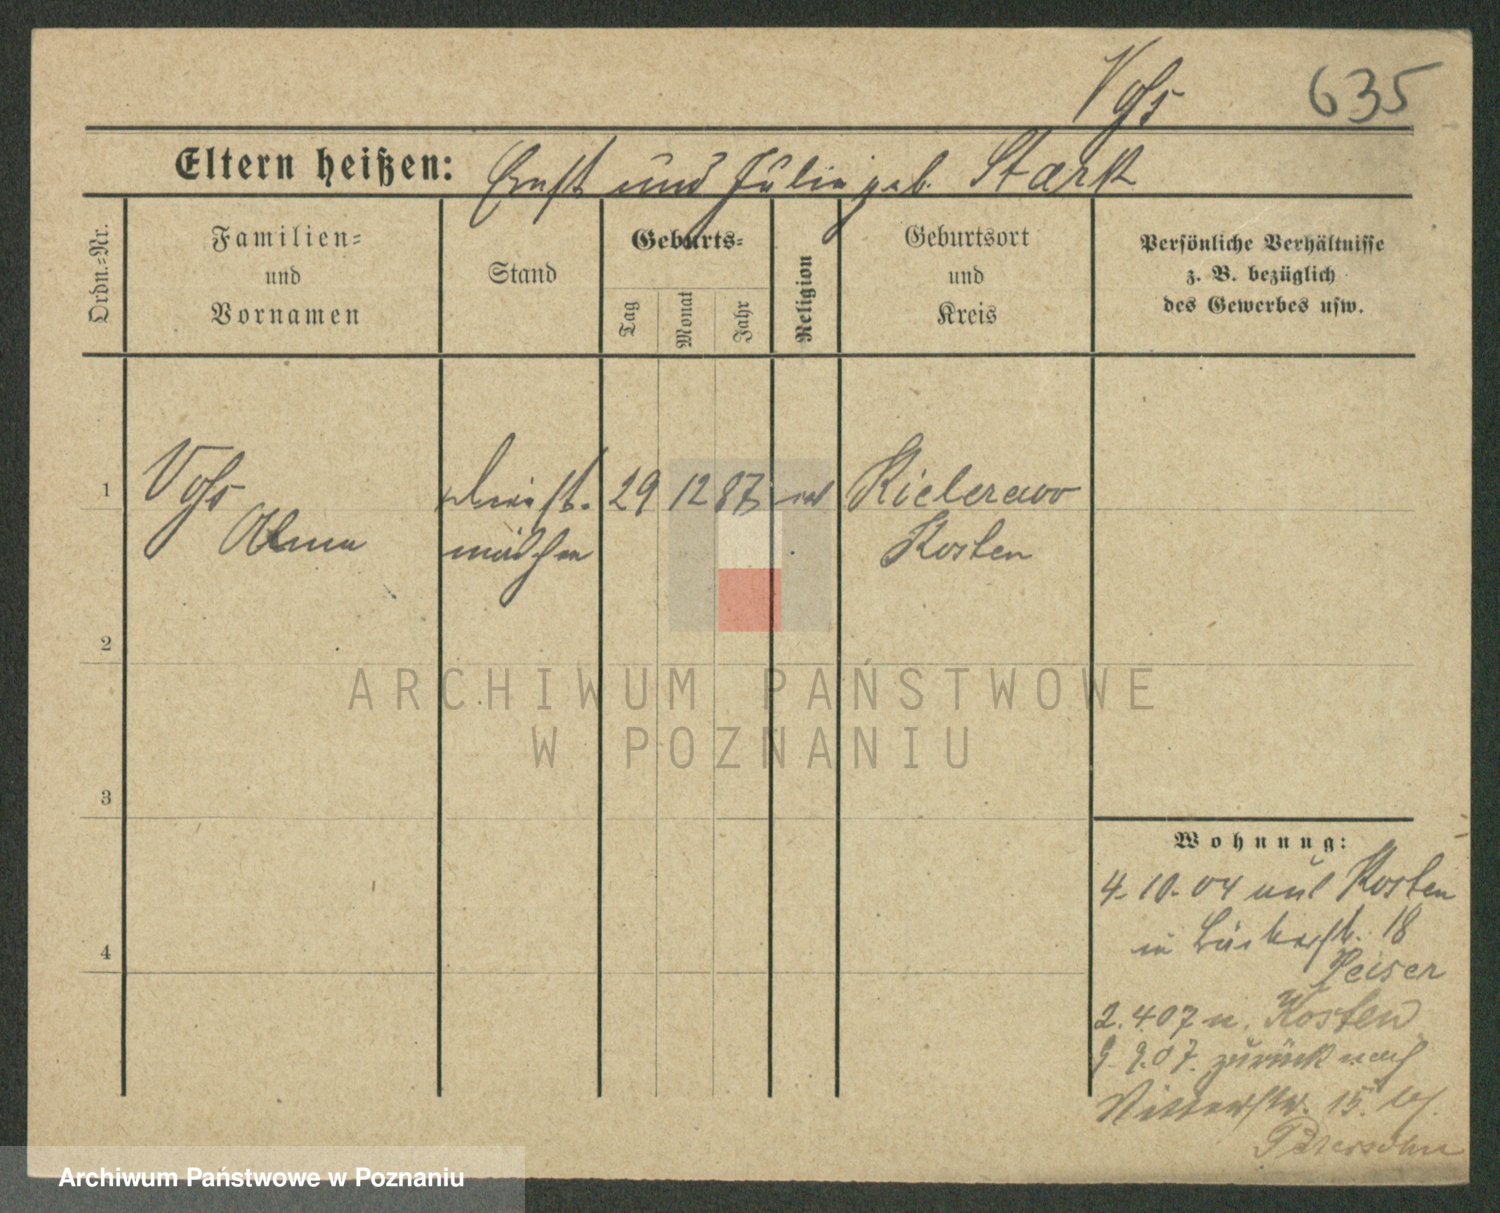 Voß 635
Eltern heißen: Ernst und Julie geb. Stark
Ordn.-Nr.
Familien-
und
Vornamen
Stand
Geburts-
Tag
Monat
Jahr
Religion
Geburtsort
und
Kreis
Persönliche Verhältnisse
z. B. bezüglich
des Gewerbes usw.
1
Voß
Alma
Dienst-
mädchen
29 12 87
Kielczewo
Kosten
2
ARCHIWUM PAŃSTWOWE
W POZNANIU
3
Wohnung:
4-10-04 aus Kosten
in 18
2.4 07 n. Kosten
9.9.07. zurück nach
Ritterstr. 15. bei
Petersohn
4
Archiwum Państwowe w Poznaniu